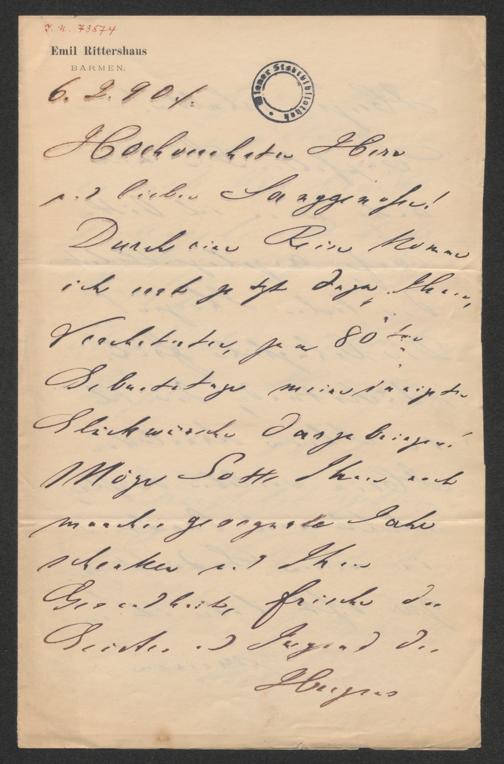 J. N. 73574
Emil Rittershaus
BARMEN.
Wiener Stadtbibliothek
6. 2. 90
Hochverehrter Herr
und lieber Sanggenosse!
Durch eine Reise komme
ich erst jetzt dazu, Ihnen,
Verehrtester, zum 80ten
Geburtstage meine innigsten
Glückwünsche darzubringen!
Möge Gott Ihnen noch
manches gesegnete Jahr
schenken und Ihnen
Gesundheit, Frische des
Geistes und Jugend des
Herzens